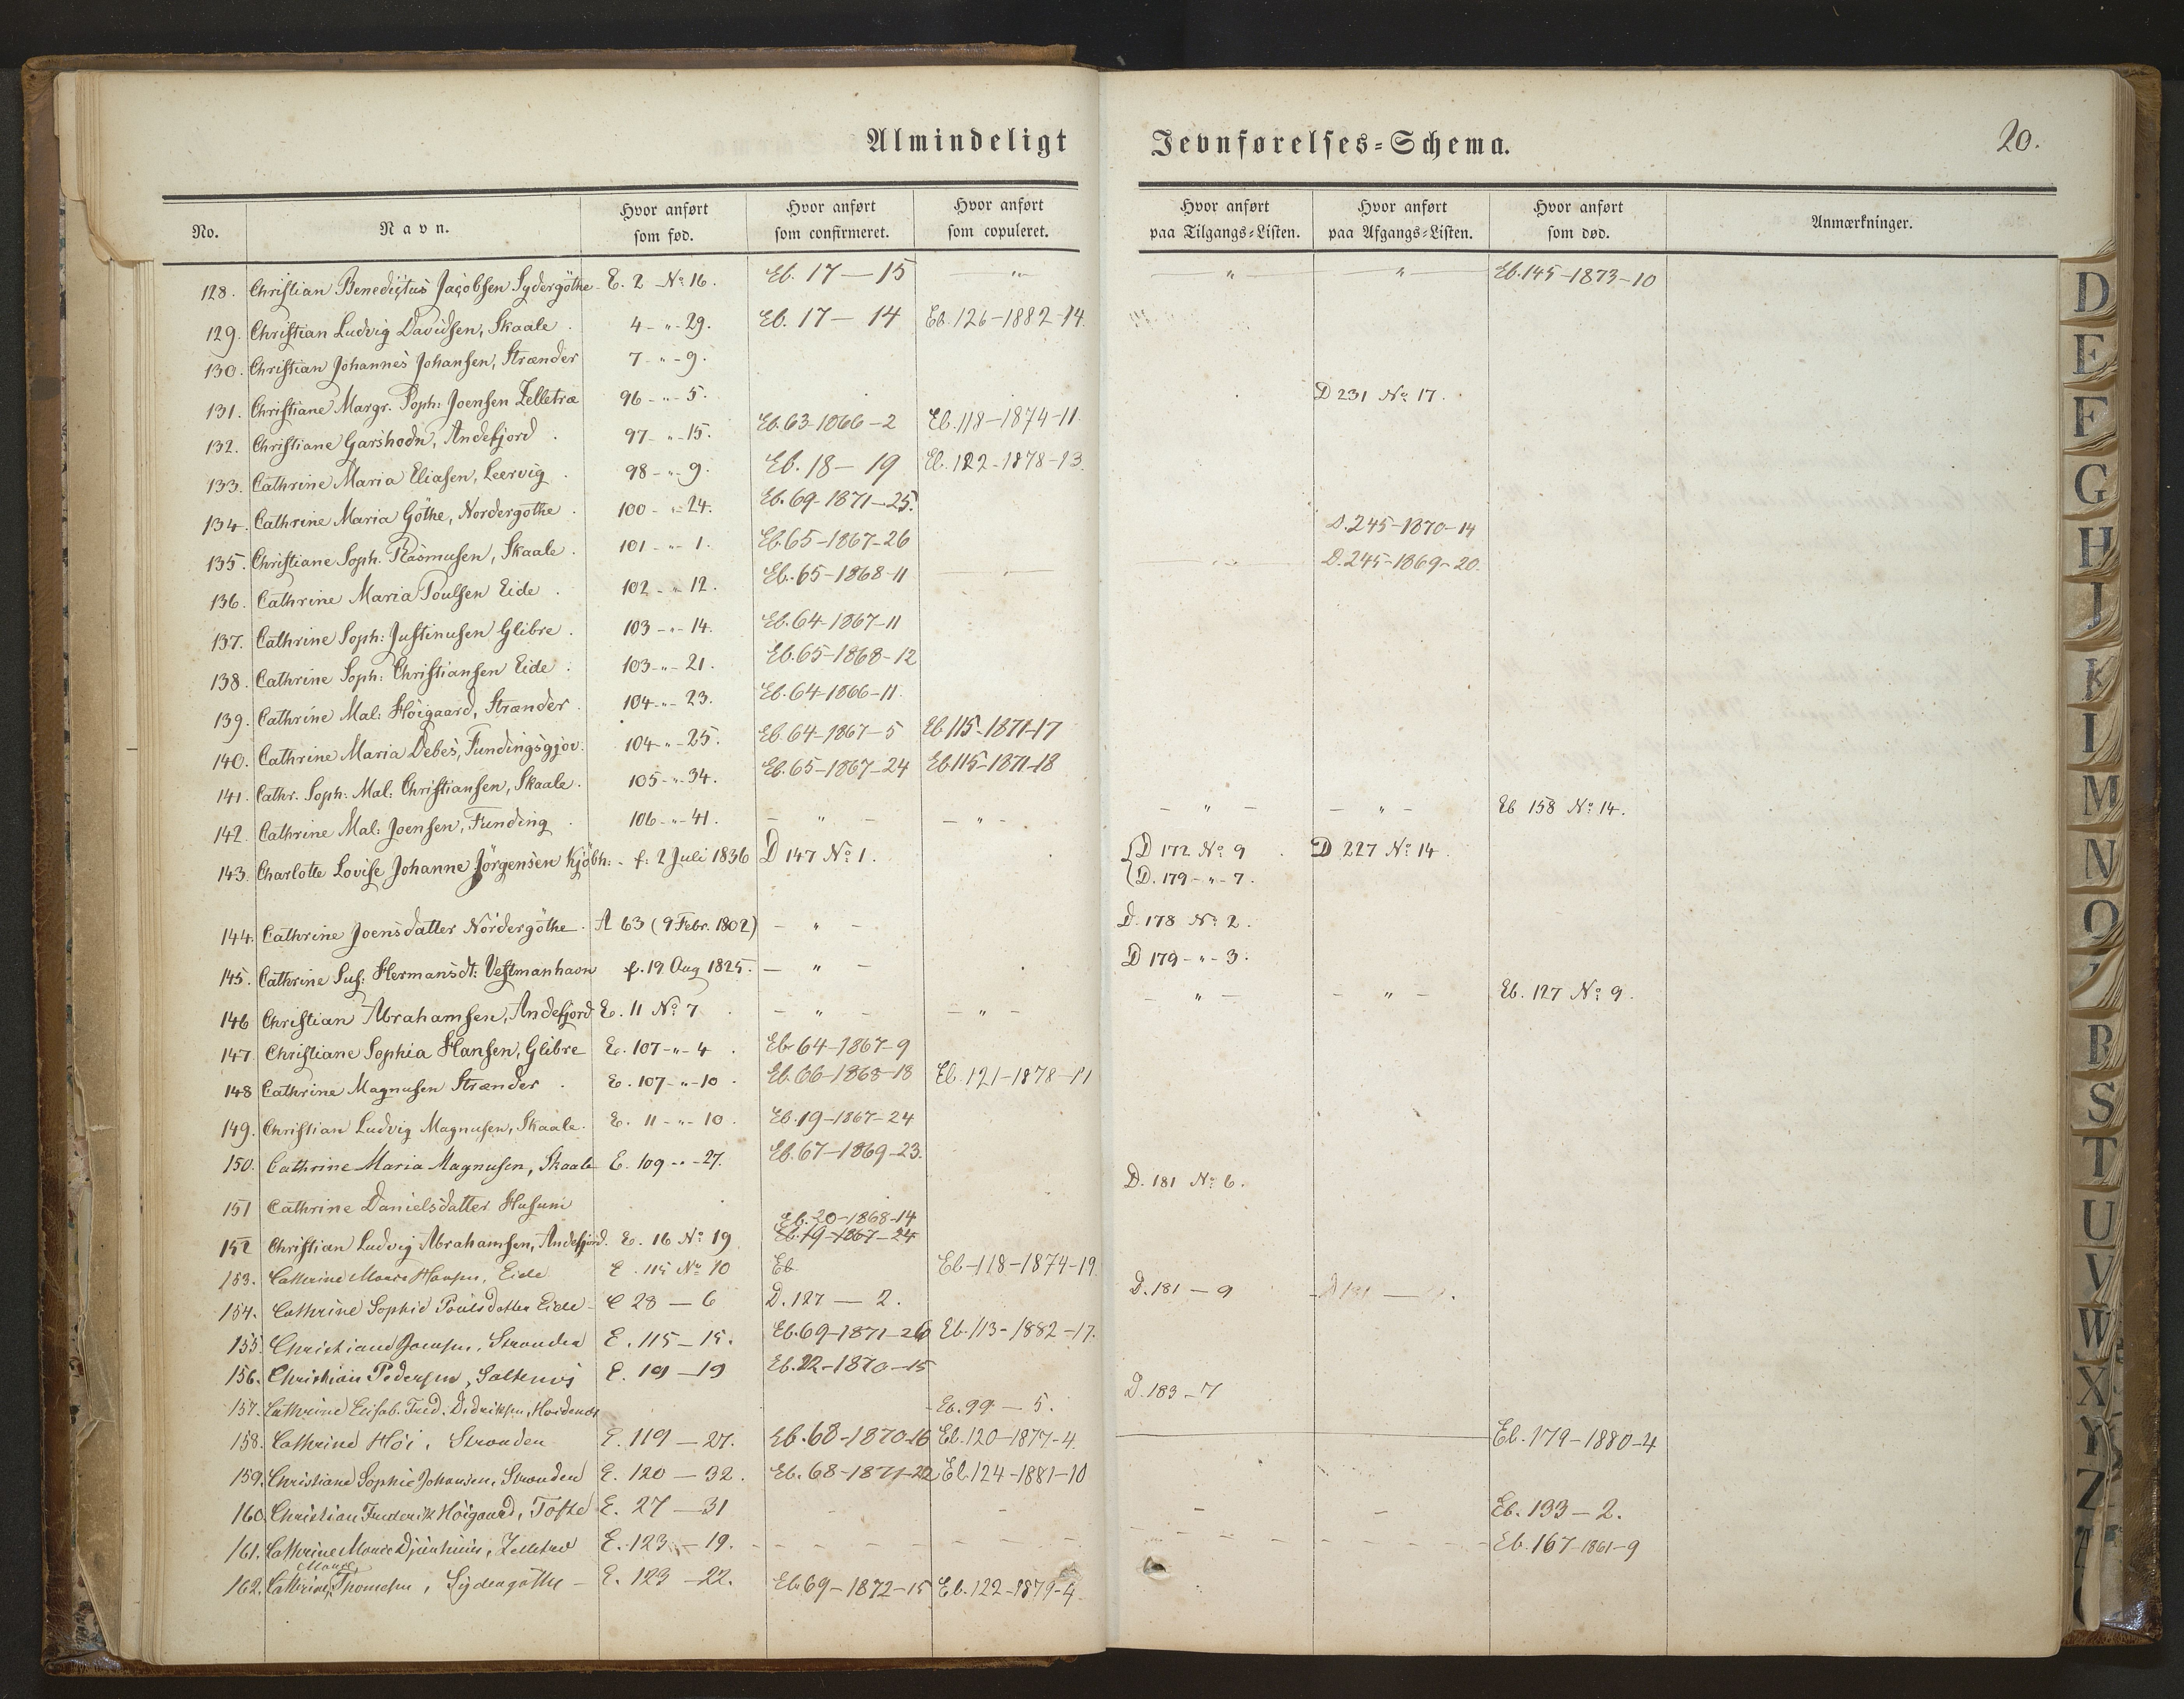 Almindeligt Jevnførelses=Schema. 20.
No. Navn. Hvor anført som fød. Hvor anført som confirmeret. Hvor anført som copuleret. Hvor anført paa Tilgangs=Listen. Hvor anført paa Afgangs=Listen. Hvor anført som død. Anmærkninger.
128. Christian Benedictus Jacobsen Sydergöthe E. 2 No 16. Eb. 17 — 15 " " " Eb. 145-1873-10
129. Christian Ludvig Davidsen, Skaale. 4 - " - 29. Eb. 17 — 14 Eb. 126-1882-14.
130. Christian Johannes Johansen, Strænder 7 - " - 9.
131. Christiane Margr. Soph: Joensen Zelletræ 96 - " - 5. D 231 No 17.
132. Christiane Garshodn, Andefjord. 97 - " - 15. Eb. 63-1866-2 Eb. 118-1874-11.
133. Cathrine Maria Eliasen, Leervig. 98 - " - 9. Eb. 18 — 19 Eb. 122-1878-13.
134. Cathrine Maria Göthe, Nordergöthe. 100 - " - 24. Eb. 69-1871-25.
135. Christiane Soph. Rasmusen, Skaale. 101 - " - 1. Eb. 65-1867-26 D. 245-1870-14
136. Cathrine Maria Poulsen Eide. 102 - " - 12. Eb. 65-1868-11 D. 245-1869-20.
137. Cathrine Soph: Justinusen Glibre. 103 - " - 14. Eb. 64-1867-11
138. Cathrine Soph: Christiansen Eide. 103 - " - 21. Eb. 65-1868-12
139. Cathrine Mal: Höigaard, Strænder. 104 - " - 23. Eb. 64-1866-11.
140. Cathrine Maria Debes, Fundingsgjov. 104 - " - 25. Eb. 64-1867-5 Eb 115-1871-17
141. Cathr. Soph: Mal: Christiansen, Skaale. 105 - " - 34. Eb. 65-1867-24 Eb. 115-1871-18
142. Cathrine Mal: Joensen, Funding. 106 - " - 41. - " - - " - - " - - " - Eb 158 No 14.
143. Charlotte Lovise Johanne Jörgensen Kjöbh: - f: 2 Juli 1836 D 147 No 1. D 172 No 9. D 227 No 14.
D. 179 - " - 7.
144. Cathrine Joensdatter Nördergöthe. A 63 (9 Febr. 1802) - " - D. 178 No 2.
145. Cathrine Sus: Hermansdt: Vestmanhavn f. 19 Aug 1825. - " - D 179 - " - 3.
146 Christian Abrahamsen, Andefjord E. 11 No 7. - " - - " - - " - - " - Eb. 127 No 9.
147. Christiane Sophia Hansen, Glibre E. 107 - " - 4. Eb 64-1867-9
148 Cathrine Magnusen Strænder. E. 107 - " - 10. Eb. 66-1868-18 Eb. 121-1878-11
149. Christian Ludvig Magnusen, Skaale. E. 11 - " - 10. Eb. 19-1867-24
150. Cathrine Maria Magnusen, Skaale E. 109 - " - 27. Eb. 67-1869-23.
151 Cathrine Danielsdatter Husum D. 181 No 6.
152 Christian Ludvig Abrahamsen, Andefjord. E. 16 No 19 Eb. 20-1868-14
Eb. 19-1867-24
153. Cathrine Marie Hansen, Eide E. 115 No 10 Eb Eb-118-1874-19.
154. Cathrine Sophie Poulsdatter Eide - C 28 — 6 D. 127 — 2. D. 181 — 9
155. Christiane Joensen, Strander E. 115 — 15. Eb. 69-1871-26 Eb. 113-1882-17.
156. Christian Pedersen, Saltenvig E. 19 — 19 Eb. 22-1870-15
157. Cathrine Elisab. Fred. Didriksen, Hvidenæs Eb. 99 — 5. D. 183 — 7
158. Cathrine Höi, Stranden E. 119 — 27. Eb. 68-1870-16 Eb. 120-1877-4. Eb. 179-1880-4
159. Christiane Sophie Johansen, Stranden E. 120 — 32. Eb. 68-1871-22 Eb. 124-1881-10
160. Christian Frederik Höigaard, Tofte E. 27 — 31 - - - - Eb. 133 — 2.
161. Cathrine Marie Djonhuus, Zelletræ E. 123 — 19. - - - - Eb. 167-1861-9
162. Cathrine Marie Thomsen, Sydergöthe - E. 123 — 22. Eb. 69-1872-15 Eb. 122-1879-4.
D
E
F
G
H
J
K
L
M
N
O
B
S
T
U
V
W
X
Y
Z